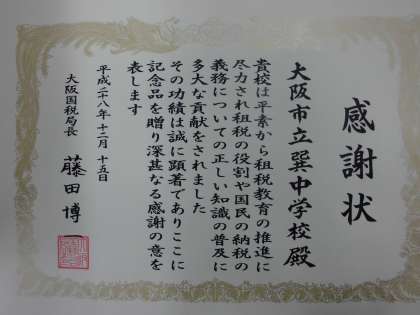 感謝状
大阪市立巽中学校殿
貴校は平素から租税教育の推進に
尽力され租税の役割や国民の納税の
義務についての正しい知識の普及に
多大な貢献をされました
その功績は誠に顕著でありここに
記念品を贈り深甚なる感謝の意を
表します
平成二十八年十二月十五日
大阪国税局長 藤田博一